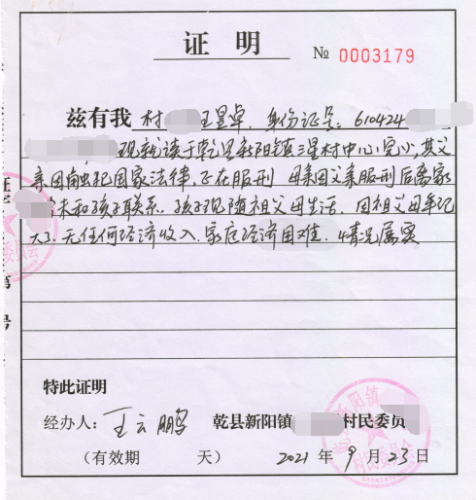 证 明
№ 0003179
兹有我 村 王星卓，身份证号：610424
现就读于乾县新阳镇三星村中心完小，其父
亲因触犯国家法律，正在服刑 母亲因父亲服刑后离家
未和孩子联系，孩子现随祖父母生活，因祖父母年纪
大了，无任何经济收入，家庭经济困难，情况属实
特此证明
经办人：王云鹏 乾县新阳镇 村民委员
（有效期 天） 2021 年 9 月 23 日